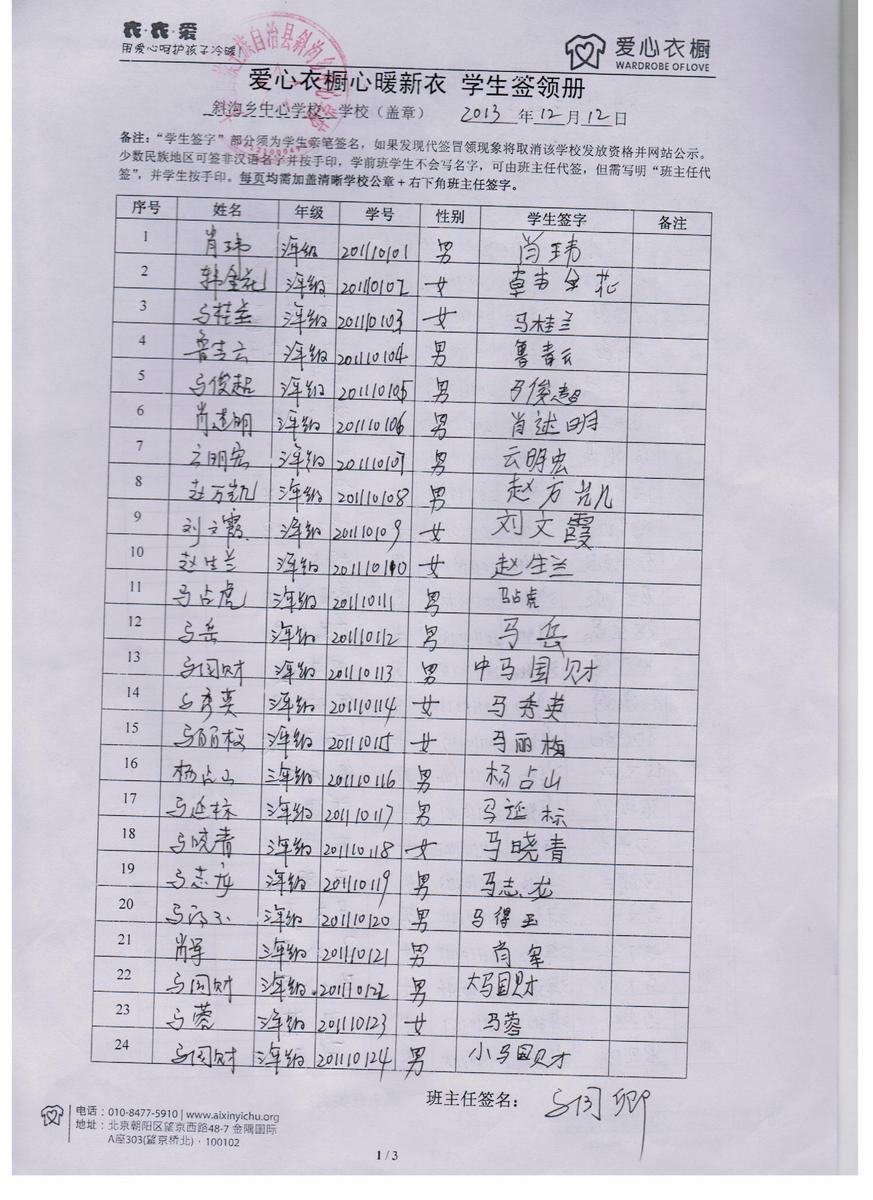 衣·衣·爱
用爱心呵护孩子冷暖!
爱心衣橱
WARDROBE OF LOVE
爱心衣橱心暖新衣 学生签领册
斜沟乡中心学校 学校（盖章） 2013 年 12 月 12 日
备注：“学生签字”部分须为学生亲笔签名，如果发现代签冒领现象将取消该学校发放资格并网站公示。
少数民族地区可签非汉语名字并按手印，学前班学生不会写名字，可由班主任代签，但需写明“班主任代
签”，并学生按手印。每页均需加盖清晰学校公章+右下角班主任签字。
序号 姓名 年级 学号 性别 学生签字 备注
1 肖玮 三年级 201110101 男 肖玮
2 韩金花 三年级 201110102 女 韩金花
3 马桂兰 三年级 201110103 女 马桂兰
4 鲁青云 三年级 201110104 男 鲁青云
5 马俊超 三年级 201110105 男 马俊超
6 肖进明 三年级 201110106 男 肖进明
7 云明宏 三年级 201110107 男 云明宏
8 赵万凯 三年级 201110108 男 赵万凯
9 刘文霞 三年级 201110109 女 刘文霞
10 赵生兰 三年级 201110110 女 赵生兰
11 马占虎 三年级 201110111 男 马占虎
12 马岳 三年级 201110112 男 马岳
13 马国财 三年级 201110113 男 中马国财
14 马秀英 三年级 201110114 女 马秀英
15 马丽梅 三年级 201110115 女 马丽梅
16 杨占山 三年级 201110116 男 杨占山
17 马延标 三年级 201110117 男 马延标
18 马晓青 三年级 201110118 女 马晓青
19 马志龙 三年级 201110119 男 马志龙
20 马得玉 三年级 201110120 男 马得玉
21 肖军 三年级 201110121 男 肖军
22 马国财 三年级 201110122 男 大马国财
23 马蓉 三年级 201110123 女 马蓉
24 马国财 三年级 201110124 男 小马国财
班主任签名：
电话：010-8477-5910 | www.aixinyichu.org
地址：北京朝阳区望京西路48-7 金隅国际
A座303(望京桥北)·100102
1 / 3